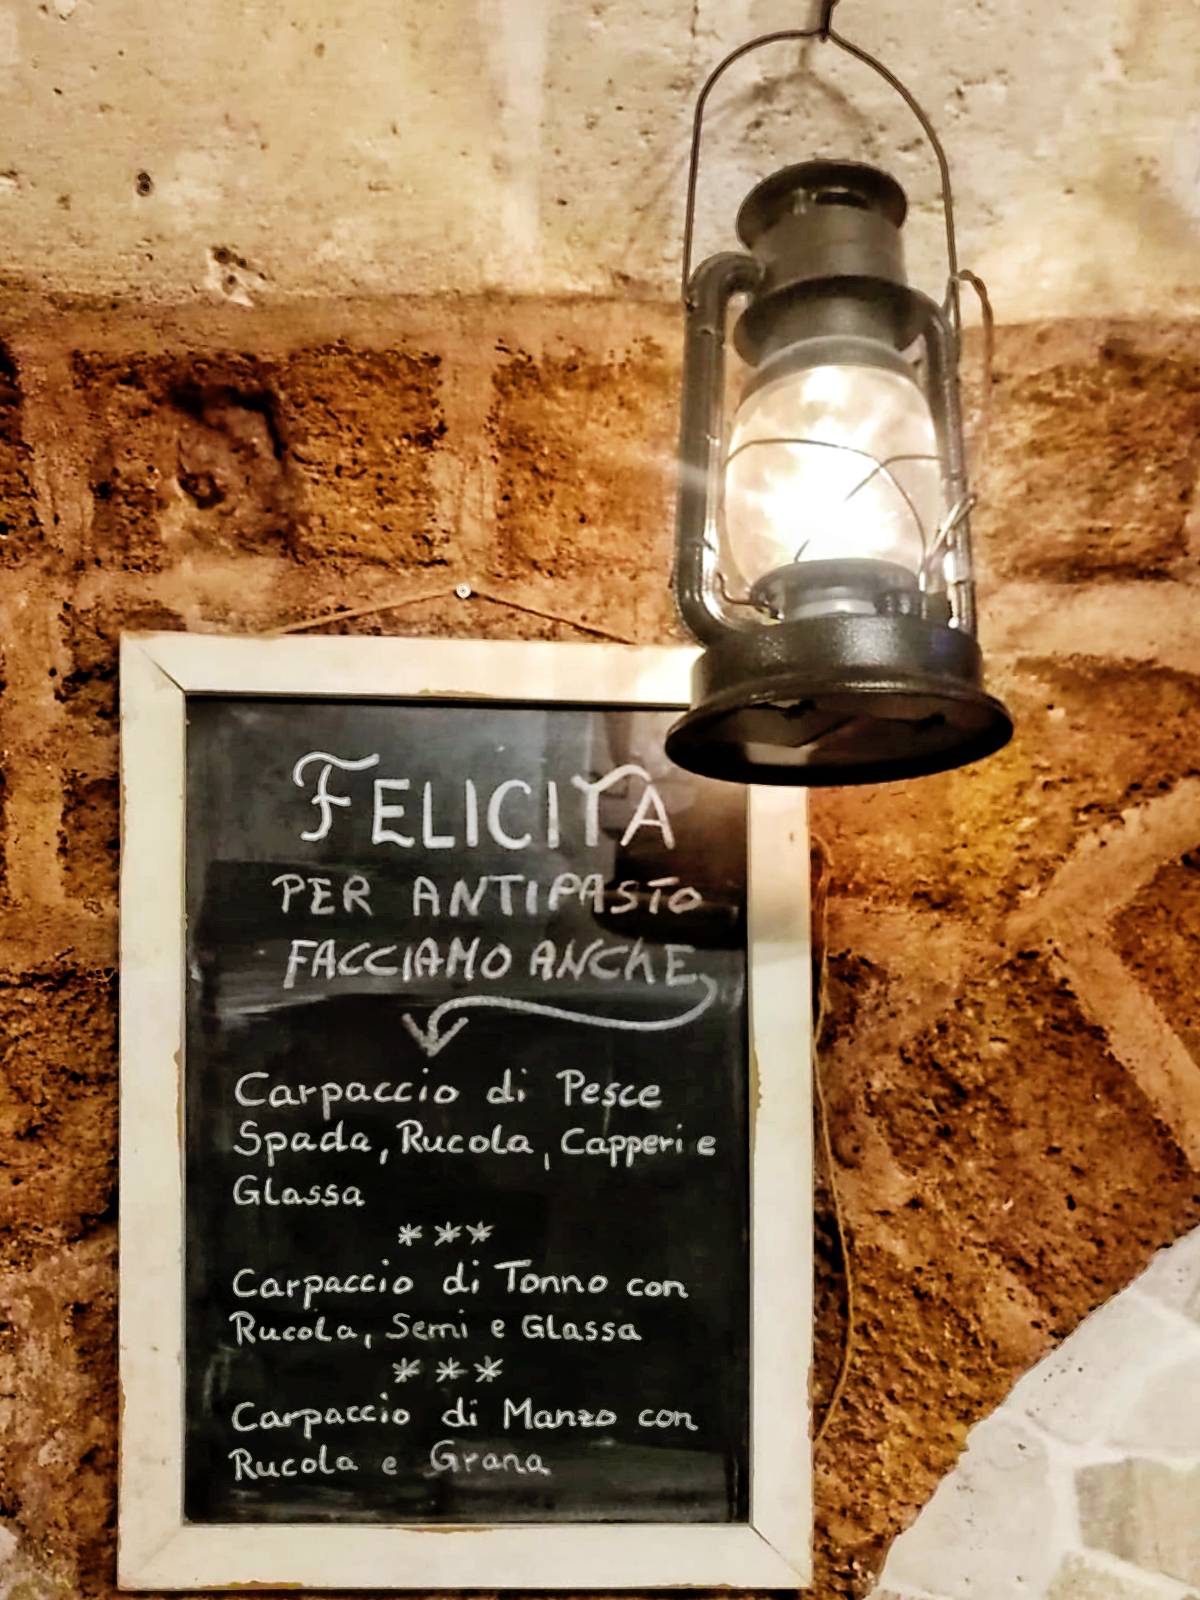 FELICITA
PER ANTIPASTO
FACCIAMO ANCHE
Carpaccio di Pesce
Spada, Rucola, Capperi e
Glassa
***
Carpaccio di Tonno con
Rucola, Semi e Glassa
***
Carpaccio di Manzo con
Rucola e Grana